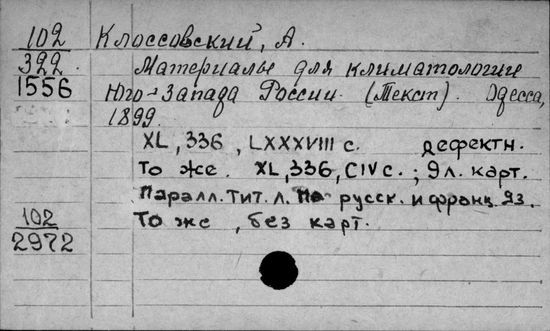 102 Клоссовский, А.
322 Материалы для климатологии
1556 Юго-Запада России. (Текст). Одесса,
1899.
XL, 336, LXXXVIII с. дефектн.
То же. XL, 336, CIV с.; 9 л. карт.
Паралл. тит. л. на русск. и франц. яз.
102 То же, без карт.
2972